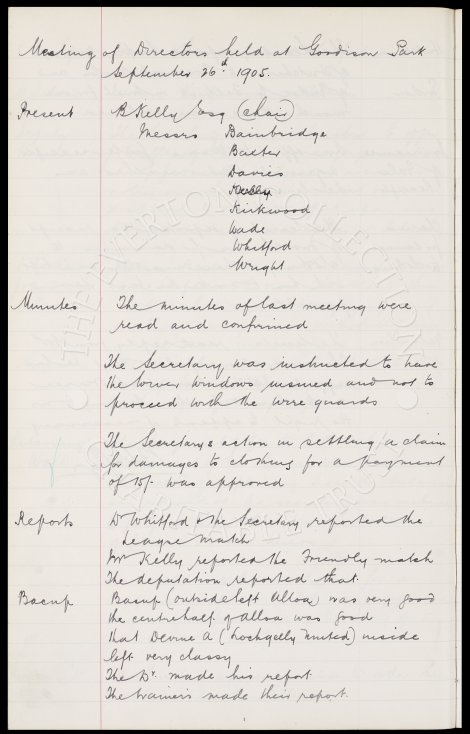 Meeting of Directors held at Goodison Park
September 26d 1905.
Present B Kelly Esq (chair)
Messrs Bainbridge
Baxter
Davies
Kelly
Kirkwood
Wade
Whitford
Wright
Minutes The minutes of last meeting were
read and confirmed
The Secretary was instructed to have
the lower windows insured and not to
proceed with the wire guards
The Secretarys action in settling a claim
for damages to clothing for a payment
of 15/- was approved
Reports Dr Whitford & the Secretary reported the
League match
Mr Kelly reported the Friendly match
The deputation reported that
Bacup Bacup (outside left Alloa) was very good
the centre half of Alloa was good
that Devine A (Lochgelly United) inside
left very classy
The Dr. made his report
The trainers made their report.
THE EVERTON COLLECTION
CHARITABLE TRUST